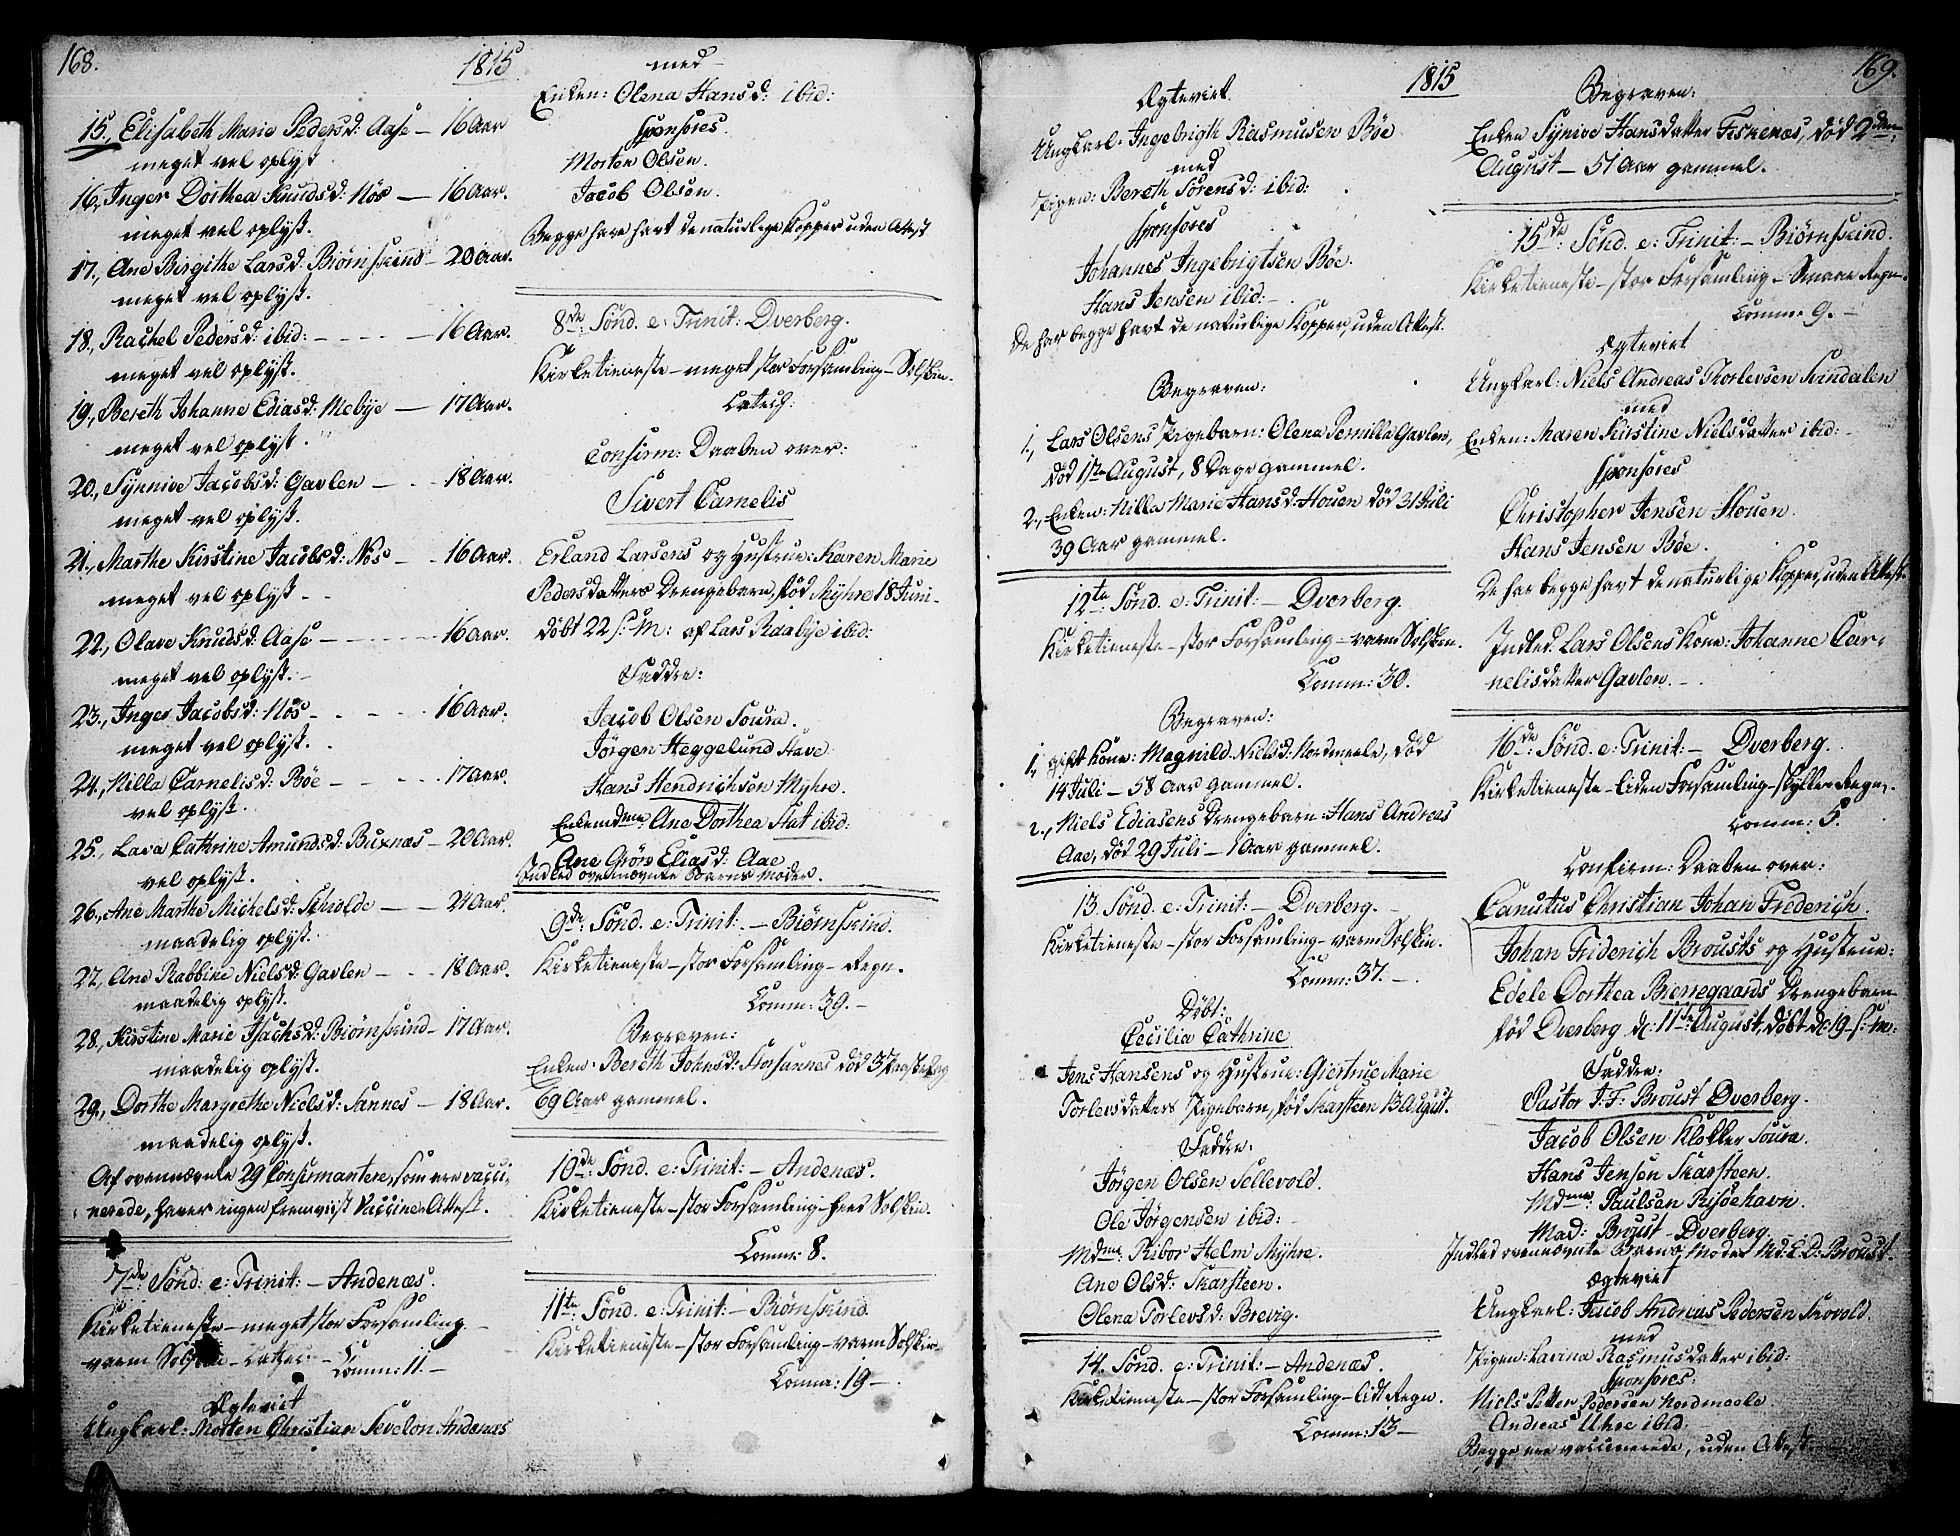 168.
1815
15., Elisabeth Marie Pedersd: Aase — 16 Aar
meget vel oplyst
16., Inger Dorthea Knudsd: Nös — 16 Aar.
meget vel oplyst.
17., Ane Birgithe Larsd: Biörnskind — 20 Aar.
meget vel oplyst.
18., Rachel Pedersd: ibid: — 16 Aar.
meget vel oplyst.
19., Bereth Johanne Ediasd: Mebye — 17 Aar.
meget vel oplyst.
20., Synnive Jacobsd: Gavlen — 18 Aar.
meget vel oplyst.
21., Marthe Kirstine Jacobsd: Nös — 16 Aar.
meget vel oplyst -
22., Olave Knudsd: Aase — 16 Aar.
meget vel oplyst. -
23., Inger Jacobsd: Nös — 16 Aar.
meget vel oplyst.
24., Nilla Carnelisd: Böe — 17 Aar.
vel oplyst.
25., Lava Cathrine Amundsd: Buxnæs — 20 Aar.
vel oplyst.
26., Ane Marthe Michelsd: — 24 Aar.
maadelig oplyst.
27., Ane Rabbine Nielsd: Gavlen — 18 Aar.
maadelig oplyst.
28., Kirstine Marie Isachsd: Biörnskind — 17 Aar.
maadelig oplyst.
29., Dorthe Margrethe Nielsd: Sannes — 18 Aar.
maadelig oplyst.
Af ovennævnte 29 Confirmantere, som ere vacci-
nerede, haver ingen fremviist Vaccine Attest.
7de: Sönd: e: Trinit: — Andenæs.
Kirketieneste — meget stor Forsamling —
varm Solskin — Catec: —
Comm: 11. —
Ægteviet
Ungkarl: Morten Christian Sevelon Andenæs
med
Enken: Olena Hansd: ibid:
Sponsores.
Morten Olsen.
Jacob Olsen.
Begge have havt de naturlige Kopper uden Attest
8de: Sönd. e: Trinit: Dverberg.
Kirketieneste — meget stor Forsamling — Solskin.
Catech:
Confirm: Daaben over:
Sivert Carnelis
Erland Larsens og Hustrue: Karen Marie
Pedersdatters Drengebarn, föd Myhre 18 Juni -
döbt 22 s: M: af Lars Raabye ibid:
Faddre:
Jacob Olsen Soura.
Jörgen Heggelund Have
Hans Hendrichsen Myhre.
Enkemdme: Ane Dorthea Hat ibid:
Ane Gröe Eliasd: Aae
Indled ovennævnte Barns Moder.
9de: Sönd. e: Trinit. — Biörnskind.
Kirketieneste — stor Forsamling — Regn.
Comm: 39. —
Begraven:
Enken: Bereth Johnsd: död 3
69 Aar gammel.
10de: Sönd. e: Trinit: — Andenæs.
Kirketieneste — stor Forsamling — Solskin.
Comm: 8.
11te: Sönd. e: Trinit: — Biörnskind
Kirketieneste — stor Forsamling — varm Solskin.
Comm: 19 —
1815
169.
Ægteviet
Ungkarl: Ingebrigth Rasmusen Böe
med
Pigen: Bereth Sörensd: ibid:
Sponsores
Johannes Ingebrigtsen Böe.
Hans Jensen ibid: -
De har begge havt de naturlige Kopper, uden Attest.
Begraven:
1., Lars Olsens Pigebarn: Olena Pernilla Gavlen,
död 1ste August, 8 Dage gammel.
2., Enken: Nilla Marie Hansd: Houen död 31 Juli
39 Aar gammel.
12te: Sönd. e: Trinit: — Dverberg.
Kirketieneste — stor Forsamling — varm Solskin.
Comm: 30.
Begraven:
1., gift Kone: Magnild Nielsd: Nordmeele, död
14 Juli — 58 Aar gammel.
2., Niels Ediasens Drengebarn: Hans Andreas
Aae, död 29 Juli — 1 Aar gammel.
13. Sönd. e: Trinit: — Dverberg.
Kirketieneste — stor Forsamling — varm Solskin.
Comm: 37. —
Döbt:
Cecilia Cathrine
Jens Hansens og Hustrue: Giertrue Marie
Torlevsdatters Pigebarn, föd Skarsteen 13 August.
Faddre.
Jörgen Olsen Sellevold.
Ole Jörgensen ibid: -
Mdme: Ribor Helm Myhre.
Ane Olsd: Skarsteen.
Olena Torlevsd: Brevig.
14. Sönd. e: Trinit: — Andenæs.
Kirketieneste — stor Forsamling — lidt Regn.
Comm: 13 —
Begraven:
Enken Synive Hansdatter Fiskenæs, död 2den
August — 51 Aar gammel.
15de: Sönd. e: Trinit: — Biörnskind.
Kirketieneste — stor Forsamling — Regn.
Comm: 9. —
Ægteviet
Ungkarl: Niels Andreas Thorlevsen Svindalen
med
Enken: Maren Kirstine Nielsdatter ibid: -
Sponsores
Christopher Jensen Houen.
Hans Jensen Böe.
De har begge havt de naturlige Kopper, uden Attest.
Indled. Lars Olsens Kone: Johanne Car-
nelisdatter Gavlen. -
16de: Sönd. e: Trinit: — Dverberg.
Kirketieneste — liden Forsamling — Regn.
Comm: 5.
Confirm: Daaben over:
Canutus Christian Johan Frederich.
Johan Friderich Brousts og Hustrue:
Edele Dorthea Bierregaards Drengebarn
föd Dverberg d: 11te August, döbt d: 19 s: M:
Faddre:
Pastor J: F: Broust Dverberg.
Jacob Olsen Klokker Soura.
Hans Jensen Skarsteen.
Mdme: Paulsen Risöehavn.
Mad: Broust Dverberg.
Indled ovennævnte Barns Moder Md: E: D: Broust.
Ægteviet
Ungkarl: Jacob Andreas Pedersen Skovold.
med
Pigen: Lavina Rasmusdatter ibid:
Sponsores.
Niels Petter Pedersen Nordmeele
Andreas Uhre ibid.
Begge ere vaccinerede, uden Attest